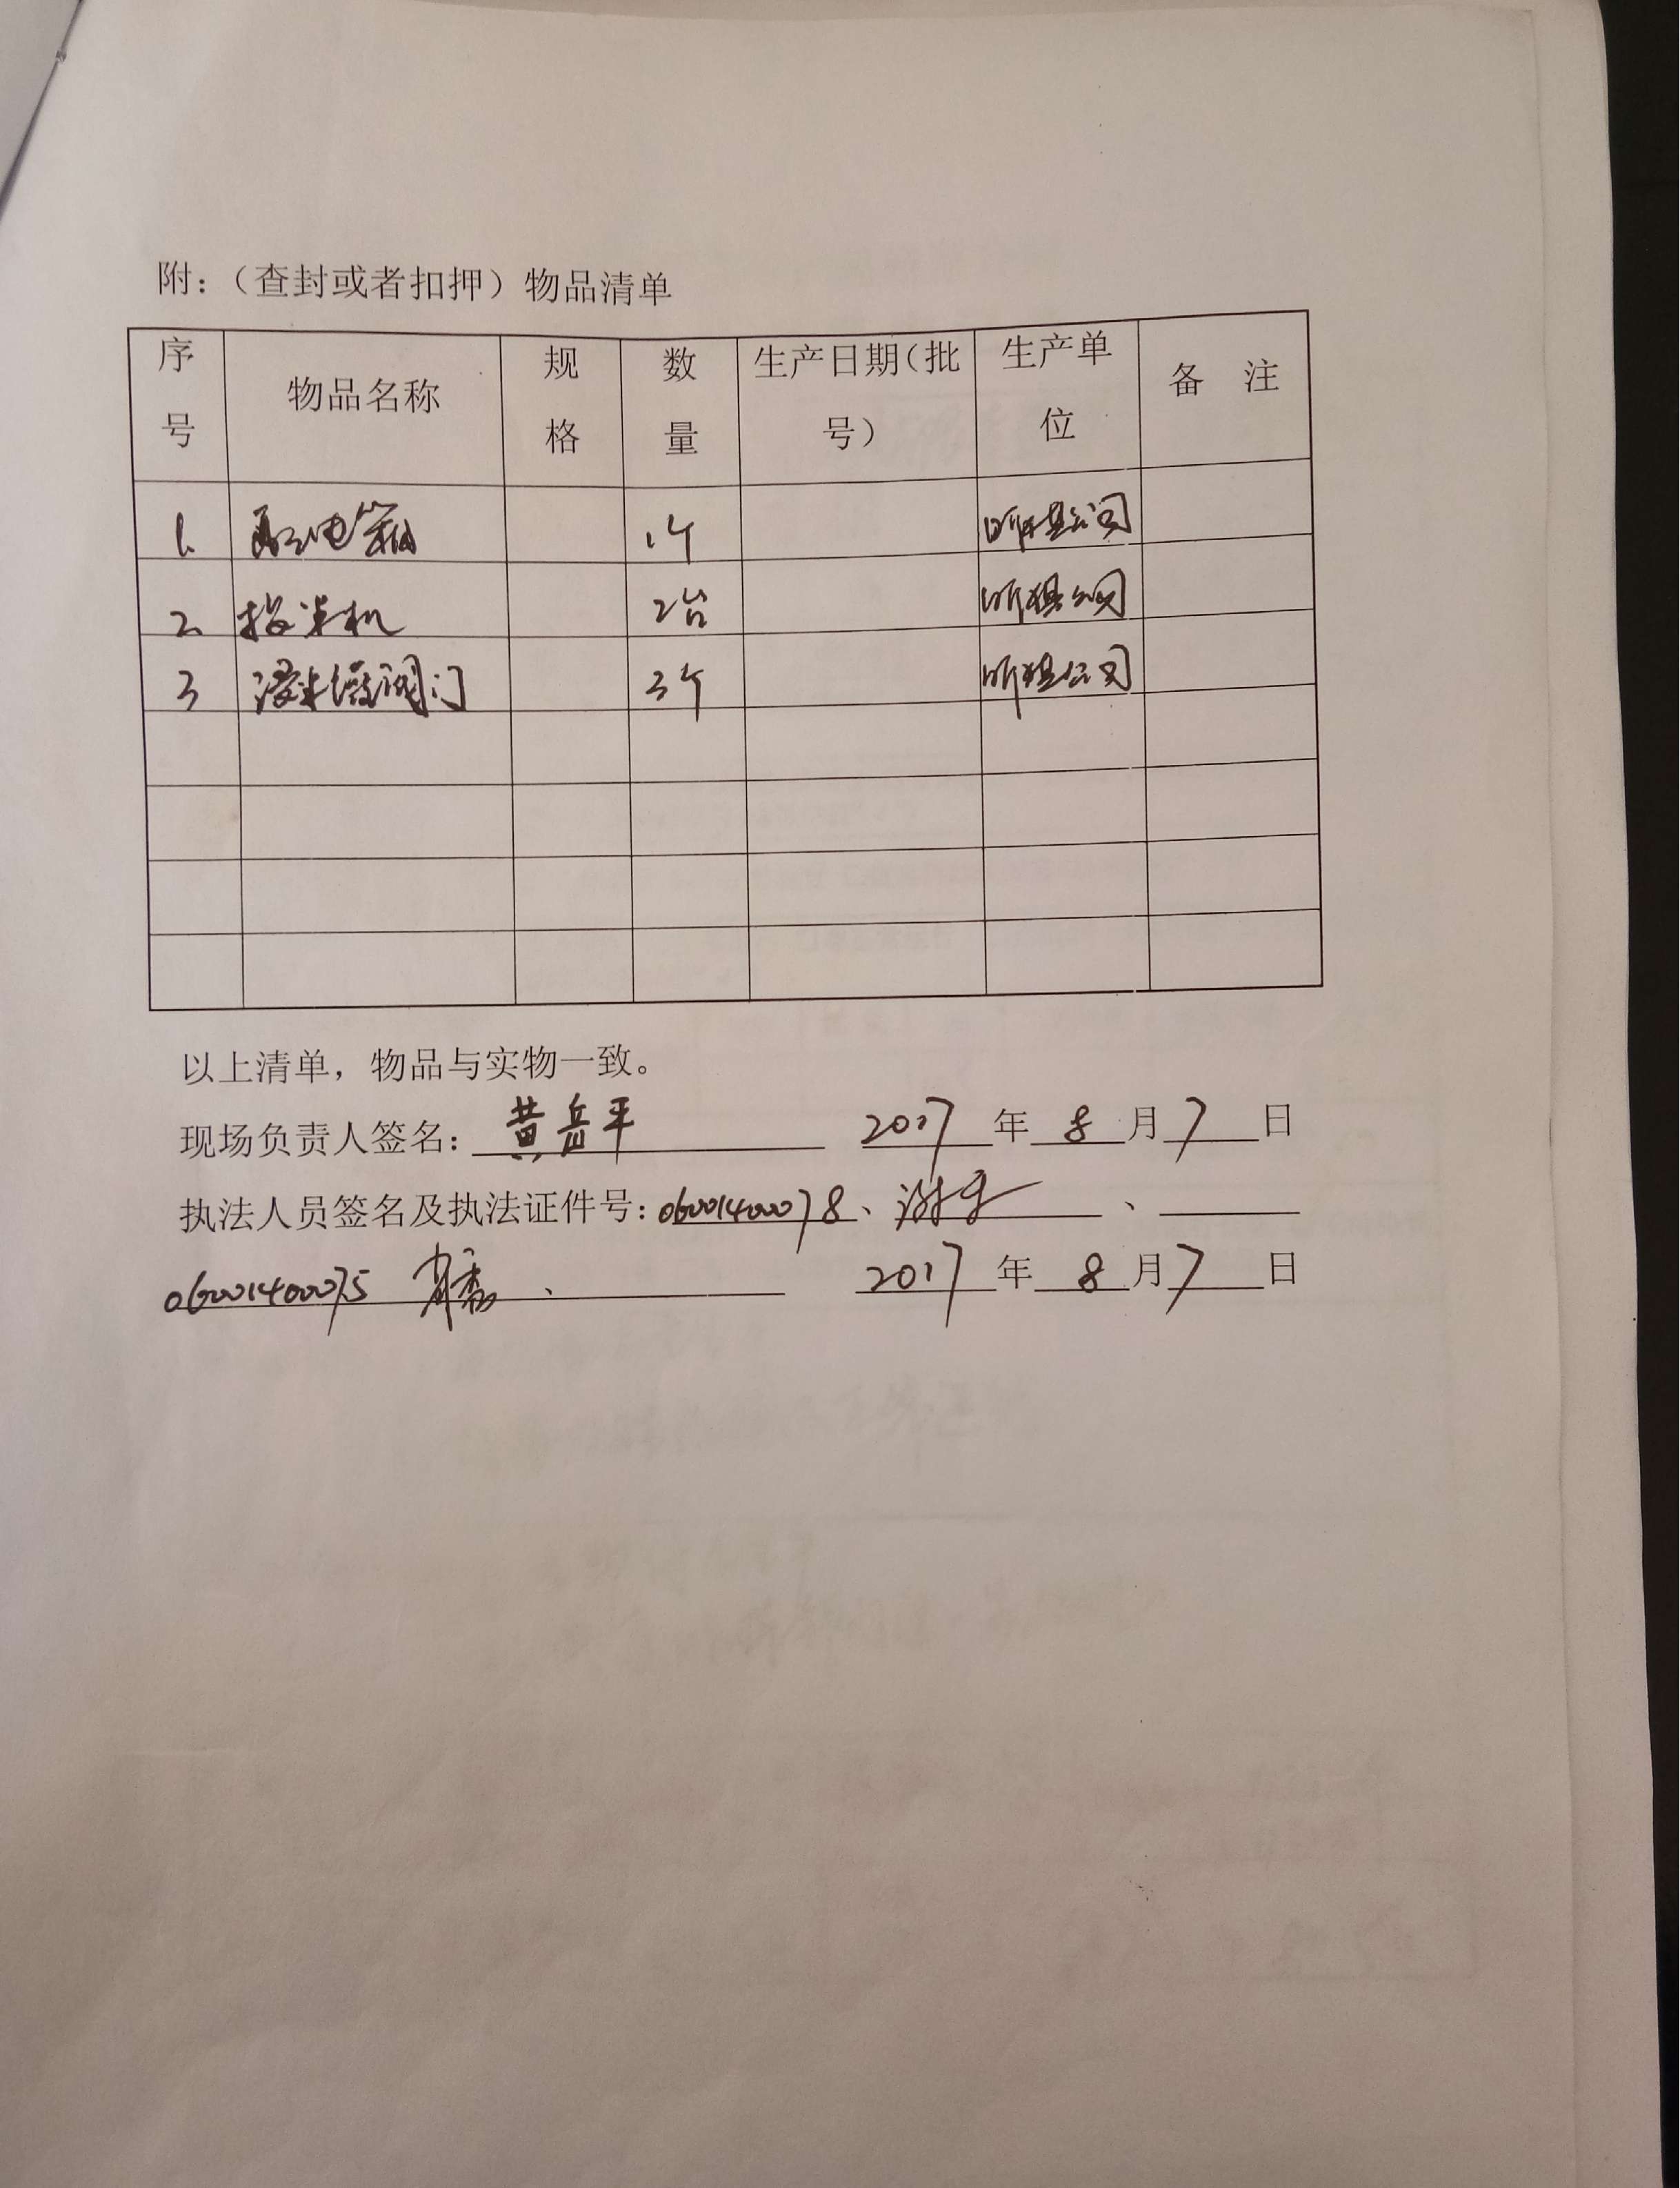 附：（查封或者扣押）物品清单
序号 物品名称 规格 数量 生产日期（批号） 生产单位 备 注
1. 配电箱 1个 公司
2 投米机 2台 公司
3 浸米罐阀门 3个 公司
以上清单，物品与实物一致。
现场负责人签名：黄岳平 2017年8月7日
执法人员签名及执法证件号：06001400078、 、
06001400075 、 2017年8月7日